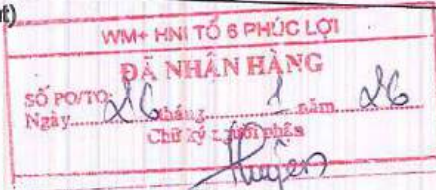 t)
WM+ HNI TỔ 6 PHÚC LỢI
ĐÃ NHẬN HÀNG
SỐ PO/TO:
Ngày 26 tháng 1 năm 26
Chữ ký người nhận
Huyền